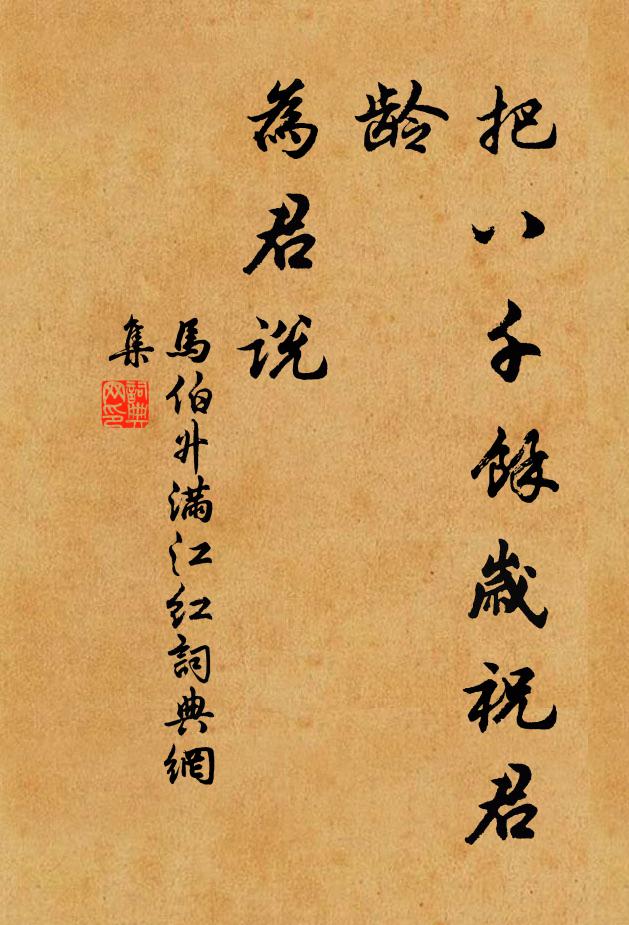 把八千餘歲祝君
龄
為君説
馬伯升滿江紅詞典網
集
詞典
网印